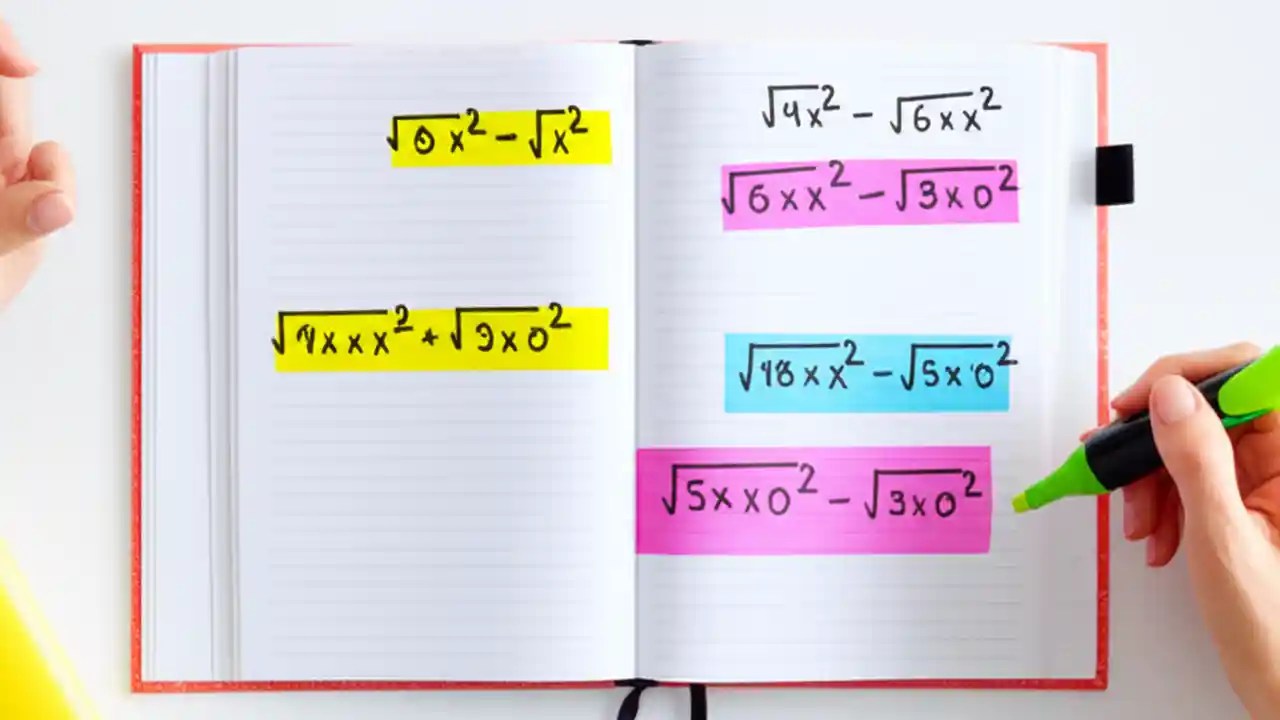 √6x² - √x²
√4xxx² + √3x0²
√4x² - √6xx²
√6xx² - √3x0²
√18xx² - √5x0²
√5xx0² - √3x0²